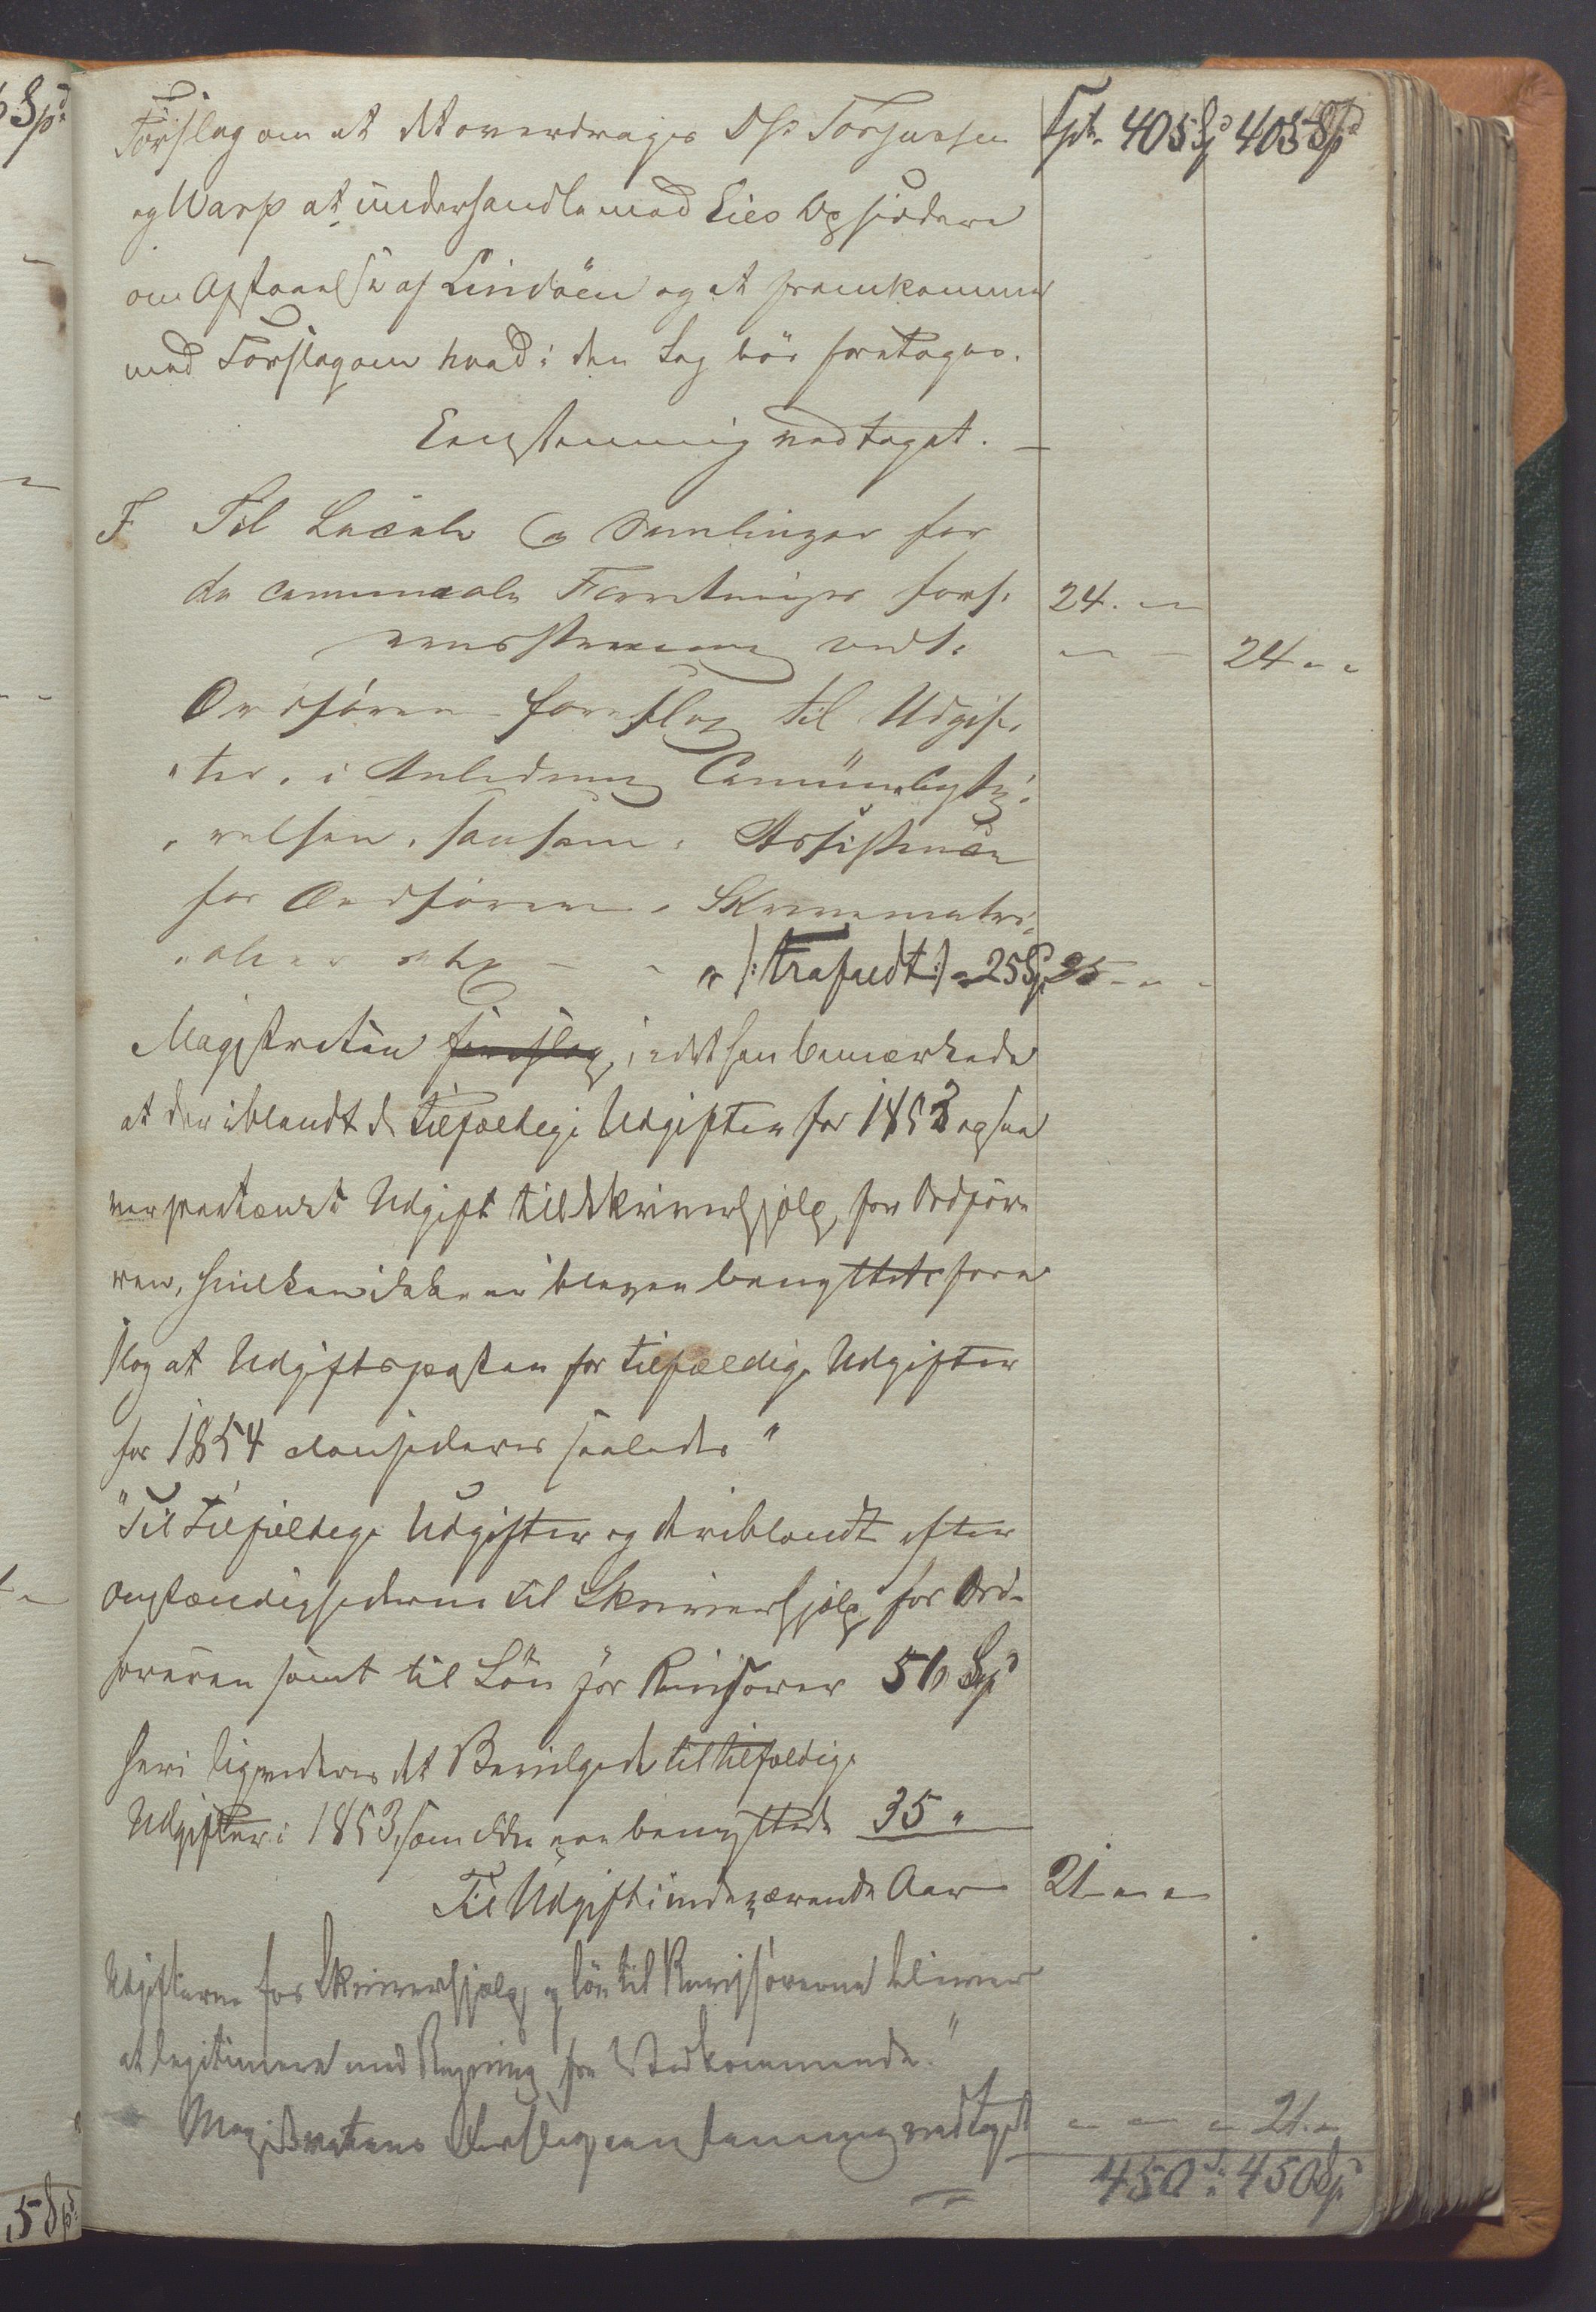 Forslag om at det overdrages Dhr Torjussen Tpt. 405 Spd 405 Spd
og Warp at underhandle med Eies Opsiddere
om Afstaaelse af Lindöen og at fremkomme
med Forslag om hvad i den Sag bör foretages.
Eenstemmig vedtaget. —
F Til Locale og Samlinger for
de communale Forretninger fors. 24. — —
eensstemmig vedt. — — 24 - -
Ordföreren foreslog til Udgif-
ter, i Anledning Communebesty-
relsen, saasom: Assistence
for Ordföreren, Skrivemateri-
aler etc — - - /: trafuedt :/ - 25 Sp 25 - - -
Magistraten foreslog, idet han bemærkede
at der iblandt de tilfældige Udgifter for 1853 ogsaa
var paatænkt Udgift til Skriverhjelp for Ordföre
ren, hvilken ikke er bleven benyttet fore
slog at Udgiftsposten for tilfældige Udgifter
for 1854 saaledes "
"Til Tilfældige Udgifter og deriblandt efter
Omstændighederne til Skriverhjelp for Ord-
föreren samt til Lön for Revisorer 56 Spd
heri det Bevilgede til tilfældige
Udgifter i 1853, som ikke ere benyttede 35 "
Til Udgift indeværende Aar 21 - -
Udgifterne for Skriverhjelp og lön til Revisorerne bliver
at legitimere med Regning fra Vedkommende."
Magistratens Forslag eenstemmig vedtaget - - - 21 -
450 d. 450 Spd